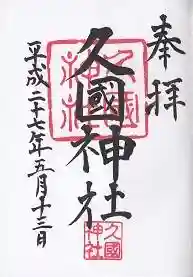 奉拝
久國神社
久國神社
平成二十七年五月十三日
久國神社